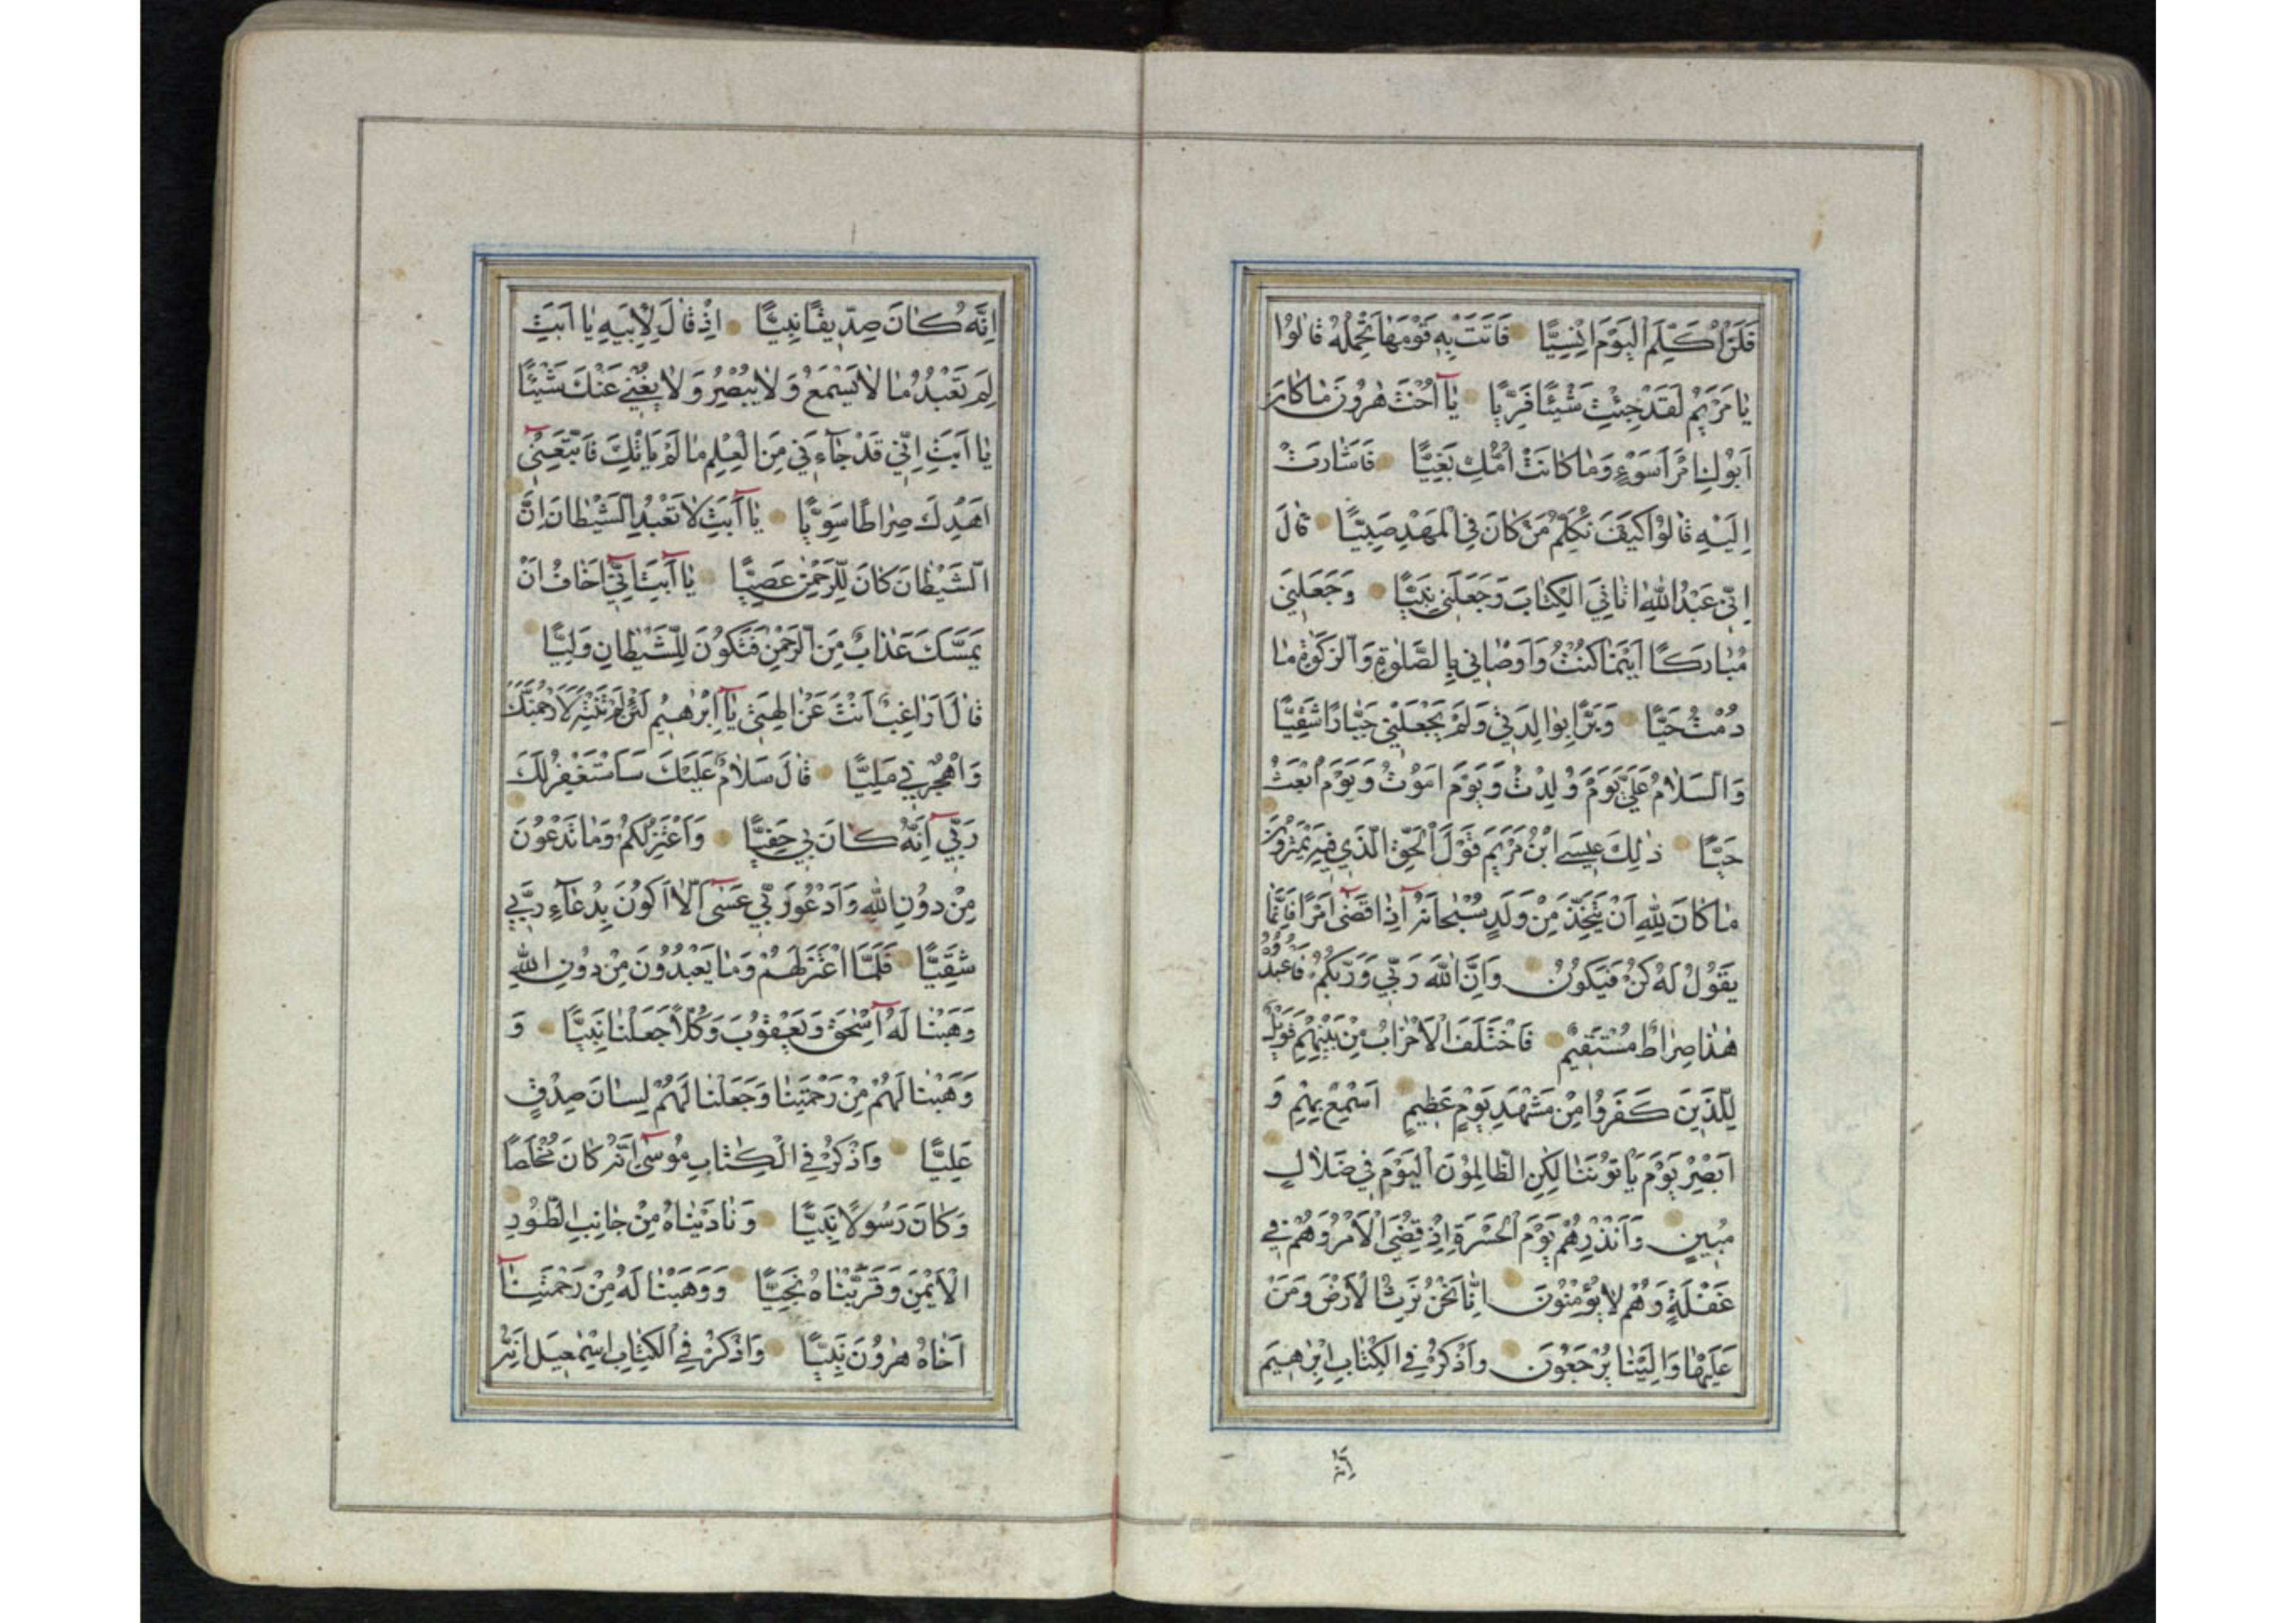 فَلَنْ اُكَلِّمَ الْيَوْمَ اِنْسِيًّا فَاَتَتْ بِهٖ قَوْمَهَا تَحْمِلُهُ قَالُوا
يَا مَرْيَمُ لَقَدْ جِئْتِ شَيْئًا فَرِيًّا يَآ اُخْتَ هٰرُونَ مَا كَانَ
اَبُوكِ امْرَاَ سَوْءٍ وَمَا كَانَتْ اُمُّكِ بَغِيًّا فَاَشَارَتْ
اِلَيْهِ قَالُوا كَيْفَ نُكَلِّمُ مَنْ كَانَ فِي الْمَهْدِ صَبِيًّا قَالَ
اِنّٖي عَبْدُ اللّٰهِ اٰتَانِيَ الْكِتَابَ وَجَعَلَنٖي نَبِيًّا وَجَعَلَنٖي
مُبَارَكًا اَيْنَمَا كُنْتُ وَاَوْصَانٖي بِالصَّلٰوةِ وَالزَّكٰوةِ مَا
دُمْتُ حَيًّا وَبَرًّا بِوَالِدَتٖي وَلَمْ يَجْعَلْنٖي جَبَّارًا شَقِيًّا
وَالسَّلَامُ عَلَيَّ يَوْمَ وُلِدْتُ وَيَوْمَ اَمُوتُ وَيَوْمَ اُبْعَثُ
حَيًّا ذٰلِكَ عٖيسَى ابْنُ مَرْيَمَ قَوْلَ الْحَقِّ الَّذٖي فٖيهِ يَمْتَرُونَ
مَا كَانَ لِلّٰهِ اَنْ يَتَّخِذَ مِنْ وَلَدٍ سُبْحَانَهُ اِذَا قَضٰى اَمْرًا فَاِنَّمَا
يَقُولُ لَهُ كُنْ فَيَكُونُ وَاِنَّ اللّٰهَ رَبّٖي وَرَبُّكُمْ فَاعْبُدُوهُ
هٰذَا صِرَاطٌ مُسْتَقٖيمٌ فَاخْتَلَفَ الْاَحْزَابُ مِنْ بَيْنِهِمْ فَوَيْلٌ
لِلَّذٖينَ كَفَرُوا مِنْ مَشْهَدِ يَوْمٍ عَظٖيمٍ اَسْمِعْ بِهِمْ وَ
اَبْصِرْ يَوْمَ يَاْتُونَنَا لٰكِنِ الظَّالِمُونَ الْيَوْمَ فٖي ضَلَالٍ
مُبٖينٍ وَاَنْذِرْهُمْ يَوْمَ الْحَسْرَةِ اِذْ قُضِيَ الْاَمْرُ وَهُمْ فٖي
غَفْلَةٍ وَهُمْ لَا يُؤْمِنُونَ اِنَّا نَحْنُ نَرِثُ الْاَرْضَ وَمَنْ
عَلَيْهَا وَاِلَيْنَا يُرْجَعُونَ وَاذْكُرْ فِي الْكِتَابِ اِبْرٰهٖيمَ
اِنَّهُ
اِنَّهُ كَانَ صِدّٖيقًا نَبِيًّا اِذْ قَالَ لِاَبٖيهِ يَا اَبَتِ
لِمَ تَعْبُدُ مَا لَا يَسْمَعُ وَلَا يُبْصِرُ وَلَا يُغْنٖي عَنْكَ شَيْئًا
يَا اَبَتِ اِنّٖي قَدْ جَآءَنٖي مِنَ الْعِلْمِ مَا لَمْ يَاْتِكَ فَاتَّبِعْنٖٓي
اَهْدِكَ صِرَاطًا سَوِيًّا يَآ اَبَتِ لَا تَعْبُدِ الشَّيْطَانَ اِنَّ
الشَّيْطَانَ كَانَ لِلرَّحْمٰنِ عَصِيًّا يَآ اَبَتِ اِنّٖٓي اَخَافُ اَنْ
يَمَسَّكَ عَذَابٌ مِنَ الرَّحْمٰنِ فَتَكُونَ لِلشَّيْطَانِ وَلِيًّا
قَالَ اَرَاغِبٌ اَنْتَ عَنْ اٰلِهَتٖي يَآ اِبْرٰهٖيمُ لَئِنْ لَمْ تَنْتَهِ لَاَرْجُمَنَّكَ
وَاهْجُرْنٖي مَلِيًّا قَالَ سَلَامٌ عَلَيْكَ سَاَسْتَغْفِرُ لَكَ
رَبّٖٓي اِنَّهُ كَانَ بٖي حَفِيًّا وَاَعْتَزِلُكُمْ وَمَا تَدْعُونَ
مِنْ دُونِ اللّٰهِ وَاَدْعُو رَبّٖي عَسٰٓى اَلَّا اَكُونَ بِدُعَآءِ رَبّٖي
شَقِيًّا فَلَمَّا اعْتَزَلَهُمْ وَمَا يَعْبُدُونَ مِنْ دُونِ اللّٰهِ
وَهَبْنَا لَهُٓ اِسْحٰقَ وَيَعْقُوبَ وَكُلًّا جَعَلْنَا نَبِيًّا وَ
وَهَبْنَا لَهُمْ مِنْ رَحْمَتِنَا وَجَعَلْنَا لَهُمْ لِسَانَ صِدْقٍ
عَلِيًّا وَاذْكُرْ فِي الْكِتَابِ مُوسٰٓى اِنَّهُ كَانَ مُخْلَصًا
وَكَانَ رَسُولًا نَبِيًّا وَنَادَيْنَاهُ مِنْ جَانِبِ الطُّورِ
الْاَيْمَنِ وَقَرَّبْنَاهُ نَجِيًّا وَوَهَبْنَا لَهُ مِنْ رَحْمَتِنَآ
اَخَاهُ هٰرُونَ نَبِيًّا وَاذْكُرْ فِي الْكِتَابِ اِسْمٰعٖيلَ اِنَّهُ